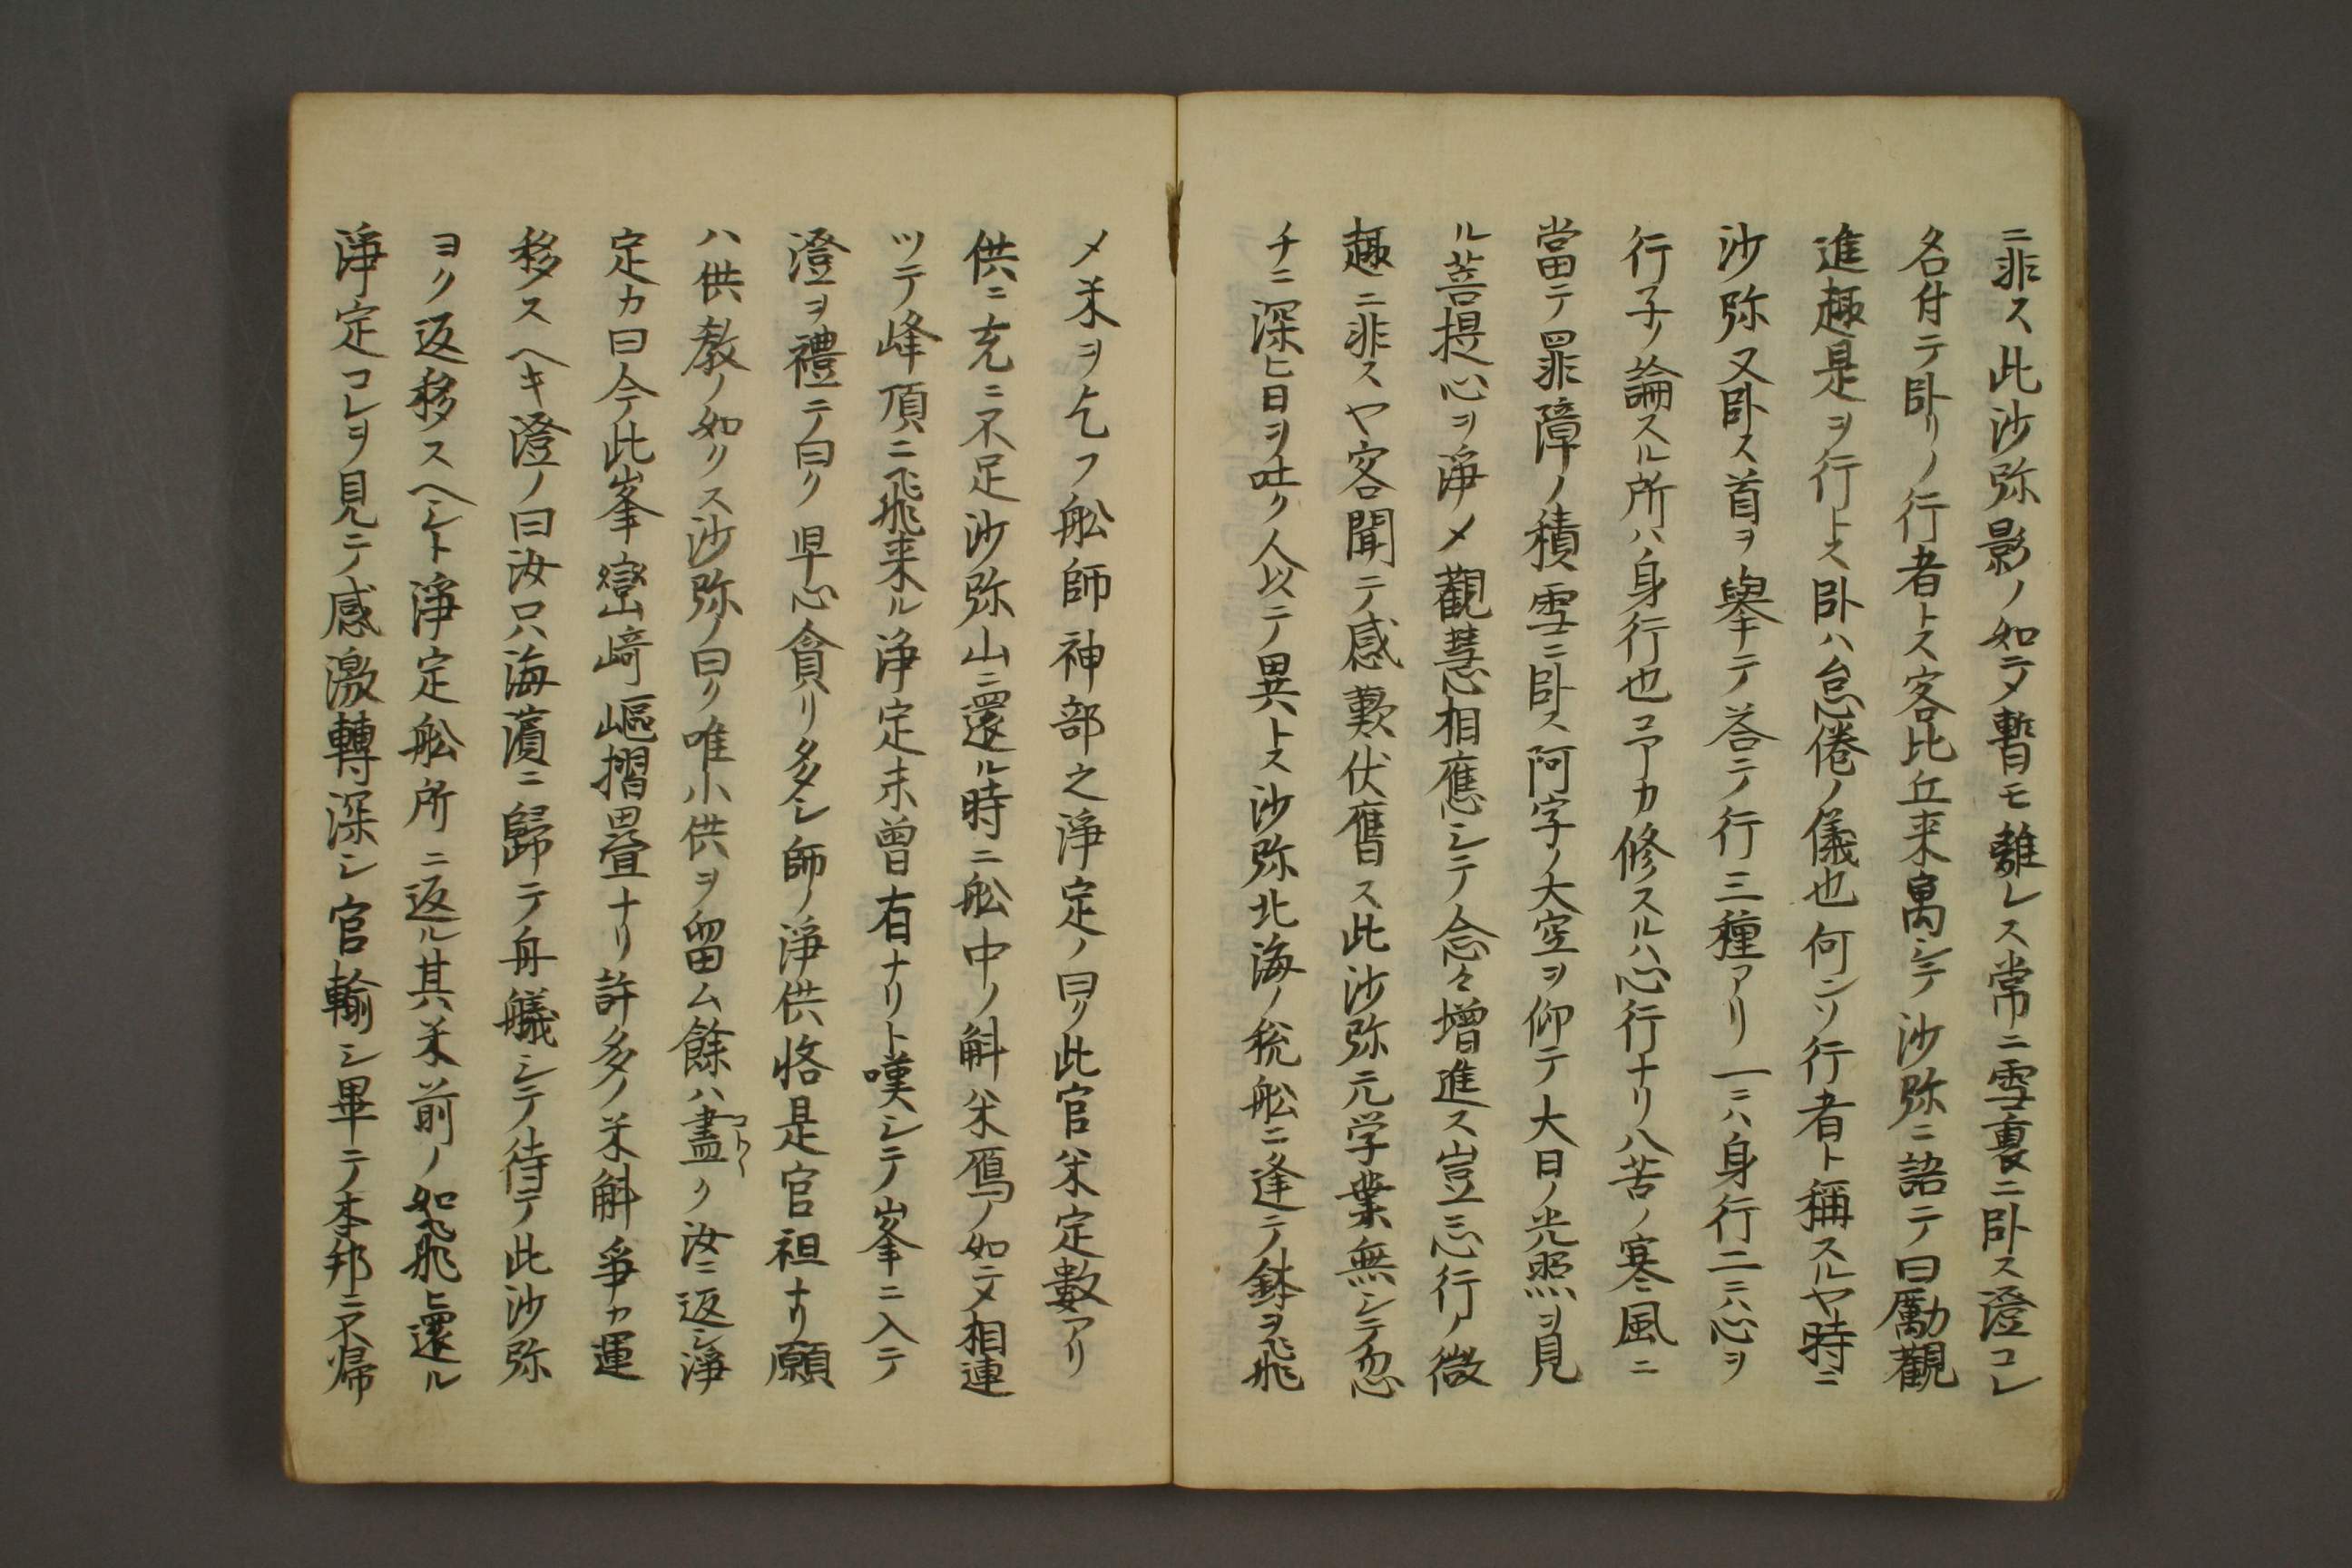 ニ非ス此沙弥影ノ如ニテ暫モ離レス常ニ雪裏ニ卧ス澄コレ
名付テ卧リノ行者トス客比丘来寓シテ沙弥ニ語テ曰勵觀
進趣是ヲ行トス卧ハ怠倦ノ儀也何ソ行者ト稱スルヤ時ニ
沙弥又卧ス首ヲ擧テ荅テ行三種アリ一ニハ身行二ニハ心ヲ
行子ノ論スル所ハ身行也コヽアカ修スルハ心行ナリ八苦ノ寒風ニ
當テ罪障ノ積雪ニ卧ス阿字ノ大空ヲ仰テ大日ノ光照ヲ見
ル菩提心ヲ淨メ觀慧相應シテ念々增進ス豈三心行ノ微
趣ニ非スヤ客聞テ感歎伏膺ス此沙弥元学業無シテ忽
チニ深ヒ日ヲ吐ク人以テ異トス沙弥北海ノ税舩ニ逢テ鉢ヲ飛
メ米ヲ乞フ舩師神部之淨定ノ曰ク此官米定數アリ
供ニ充ニ不足沙弥山ニ還ル時ニ舩中ノ斛米鴈ノ如ニテ相連
ツテ峰頂ニ飛来ル淨定未曾有ナリト嘆シテ峯ニ入テ
澄ヲ禮テ曰ク早心貪リ多シ師ノ淨供悋是官祖ナリ願
ハ供教ノ如クス沙弥ノ曰ク唯小供ヲ留ム餘ハ盡ク汝ニ返シ淨
定カ曰今此峯巒崎嶇摺疊ナリ許多ノ米斛爭カ運
移スヘキ澄ノ曰汝只海濱ニ歸テ舟艤シテ待テ此沙弥
ヨク返移スヘシト淨定舩所ニ返ル其米前ノ如飛ヒ還ル
淨定コレヲ見テ感激轉深シ官輸シ畢テ本邦ニ不帰